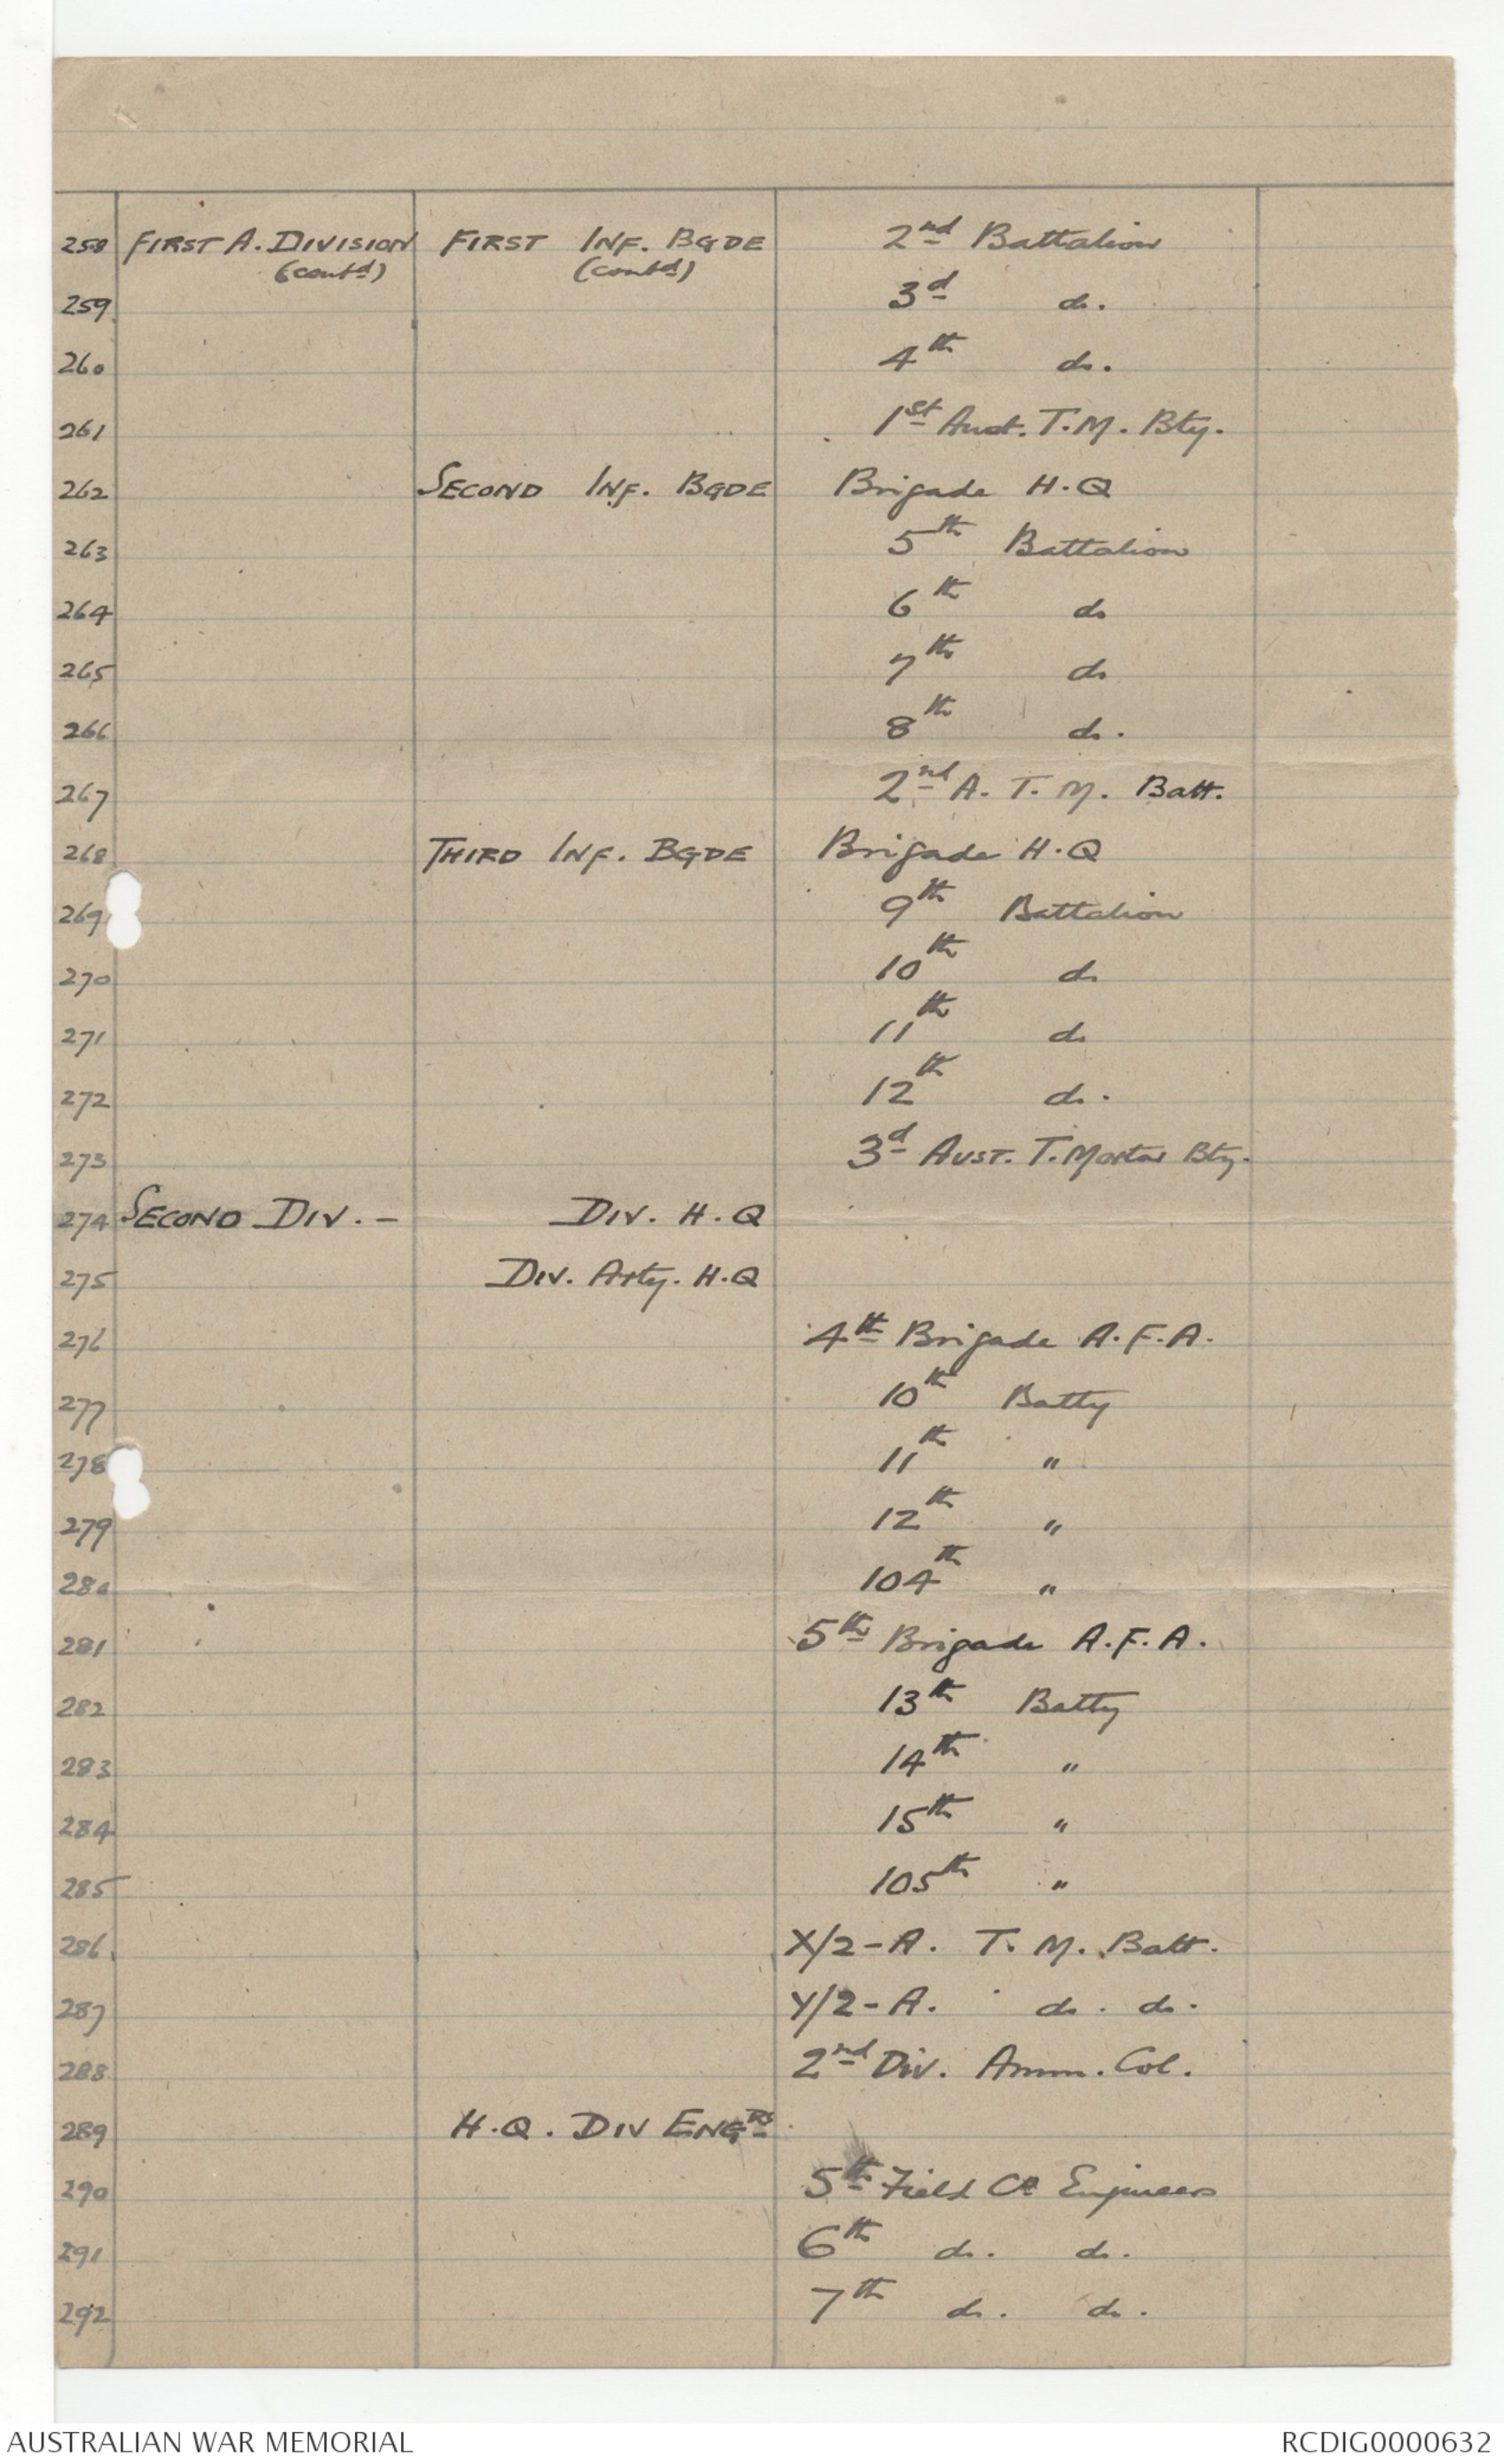 258 FIRST A. DIVISION FIRST INF. BGDE 2nd Battalion
(contd) (contd)
259 3d do.
260 4th do.
261 1st Aust. T.M. Bty.
262 SECOND INF. BGDE Brigade H.Q
263 5th Battalion
264 6th do
265 7th do
266 8th do.
267 2nd A. T. M. Batt.
268 THIRD INF. BGDE Brigade H.Q
269 9th Battalion
270 10th do
271 11th do
272 12th do.
273 3d AUST. T. Mortar Bty.
274 SECOND DIV. - DIV. H.Q
275 DIV. Arty. H.Q
276 4th Brigade A.F.A.
277 10th Batty
278 11th "
279 12th "
280 104th "
281 5th Brigade A.F.A.
282 13th Batty
283 14th "
284 15th "
285 105th "
286 X/2-A. T. M. Batt.
287 Y/2-A. do. do.
288 2nd Div. Amm. Col.
289 H.Q. DIV ENGRS
290 5th Field Co Engineers
291 6th do. do.
292 7th do. do.
AUSTRALIAN WAR MEMORIAL RCDIG0000632